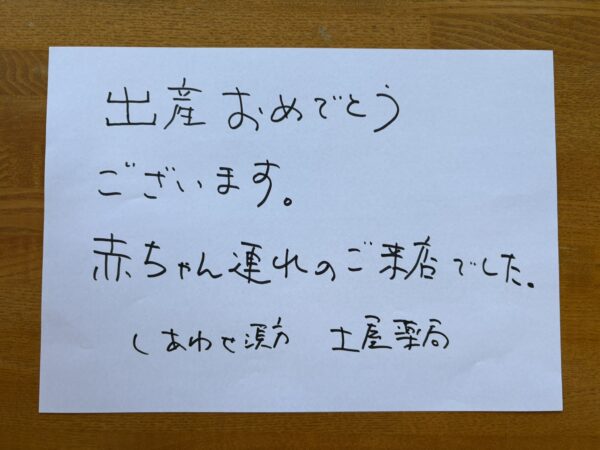 出産おめでとう
ございます。
赤ちゃん連れのご来店でした。
しあわせ漢方 土屋薬局